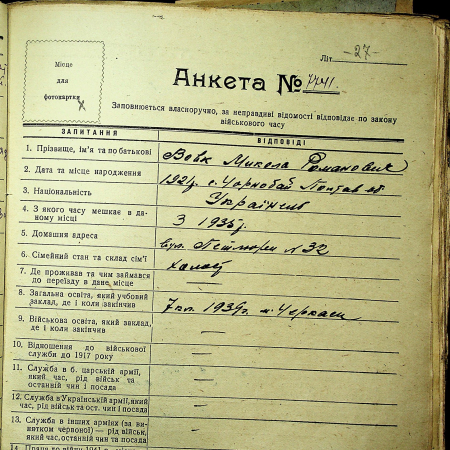 Літ. -27-
Місце
для
фотокартки
Анкета № 7741.
Заповнюється власноручно, за неправдиві відомості відповідає по закону
військового часу
ЗАПИТАННЯ ВІДПОВІДІ
1. Прізвище, ім'я та по батькові Вовк Микола Романович
2. Дата та місце народження 1921р. с. Чорнобай Полтав об.
3. Національність Українець
4. З якого часу мешкає в да-
ному місці З 1935р.
5. Домашня адреса вул. N 32
6. Сімейний стан та склад сім'ї холост
7. Де проживав та чим займався
до переїзду в дане місце —
8. Загальна освіта, який учбовий
заклад, де і коли закінчив 7кл. 1939р. м. Черкаси
9. Військова освіта, який заклад,
де і коли закінчив —
10. Відношення до військової
служби до 1917 року —
11. Служба в б. царській армії,
який час, рід військ та
останній чин і посада —
12. Служба в Українській армії, який
час, рід військ та ост. чин і посада —
13. Служба в інших арміях (за ви-
нятком червоної) — рід військ,
який час, останній чин та посада —